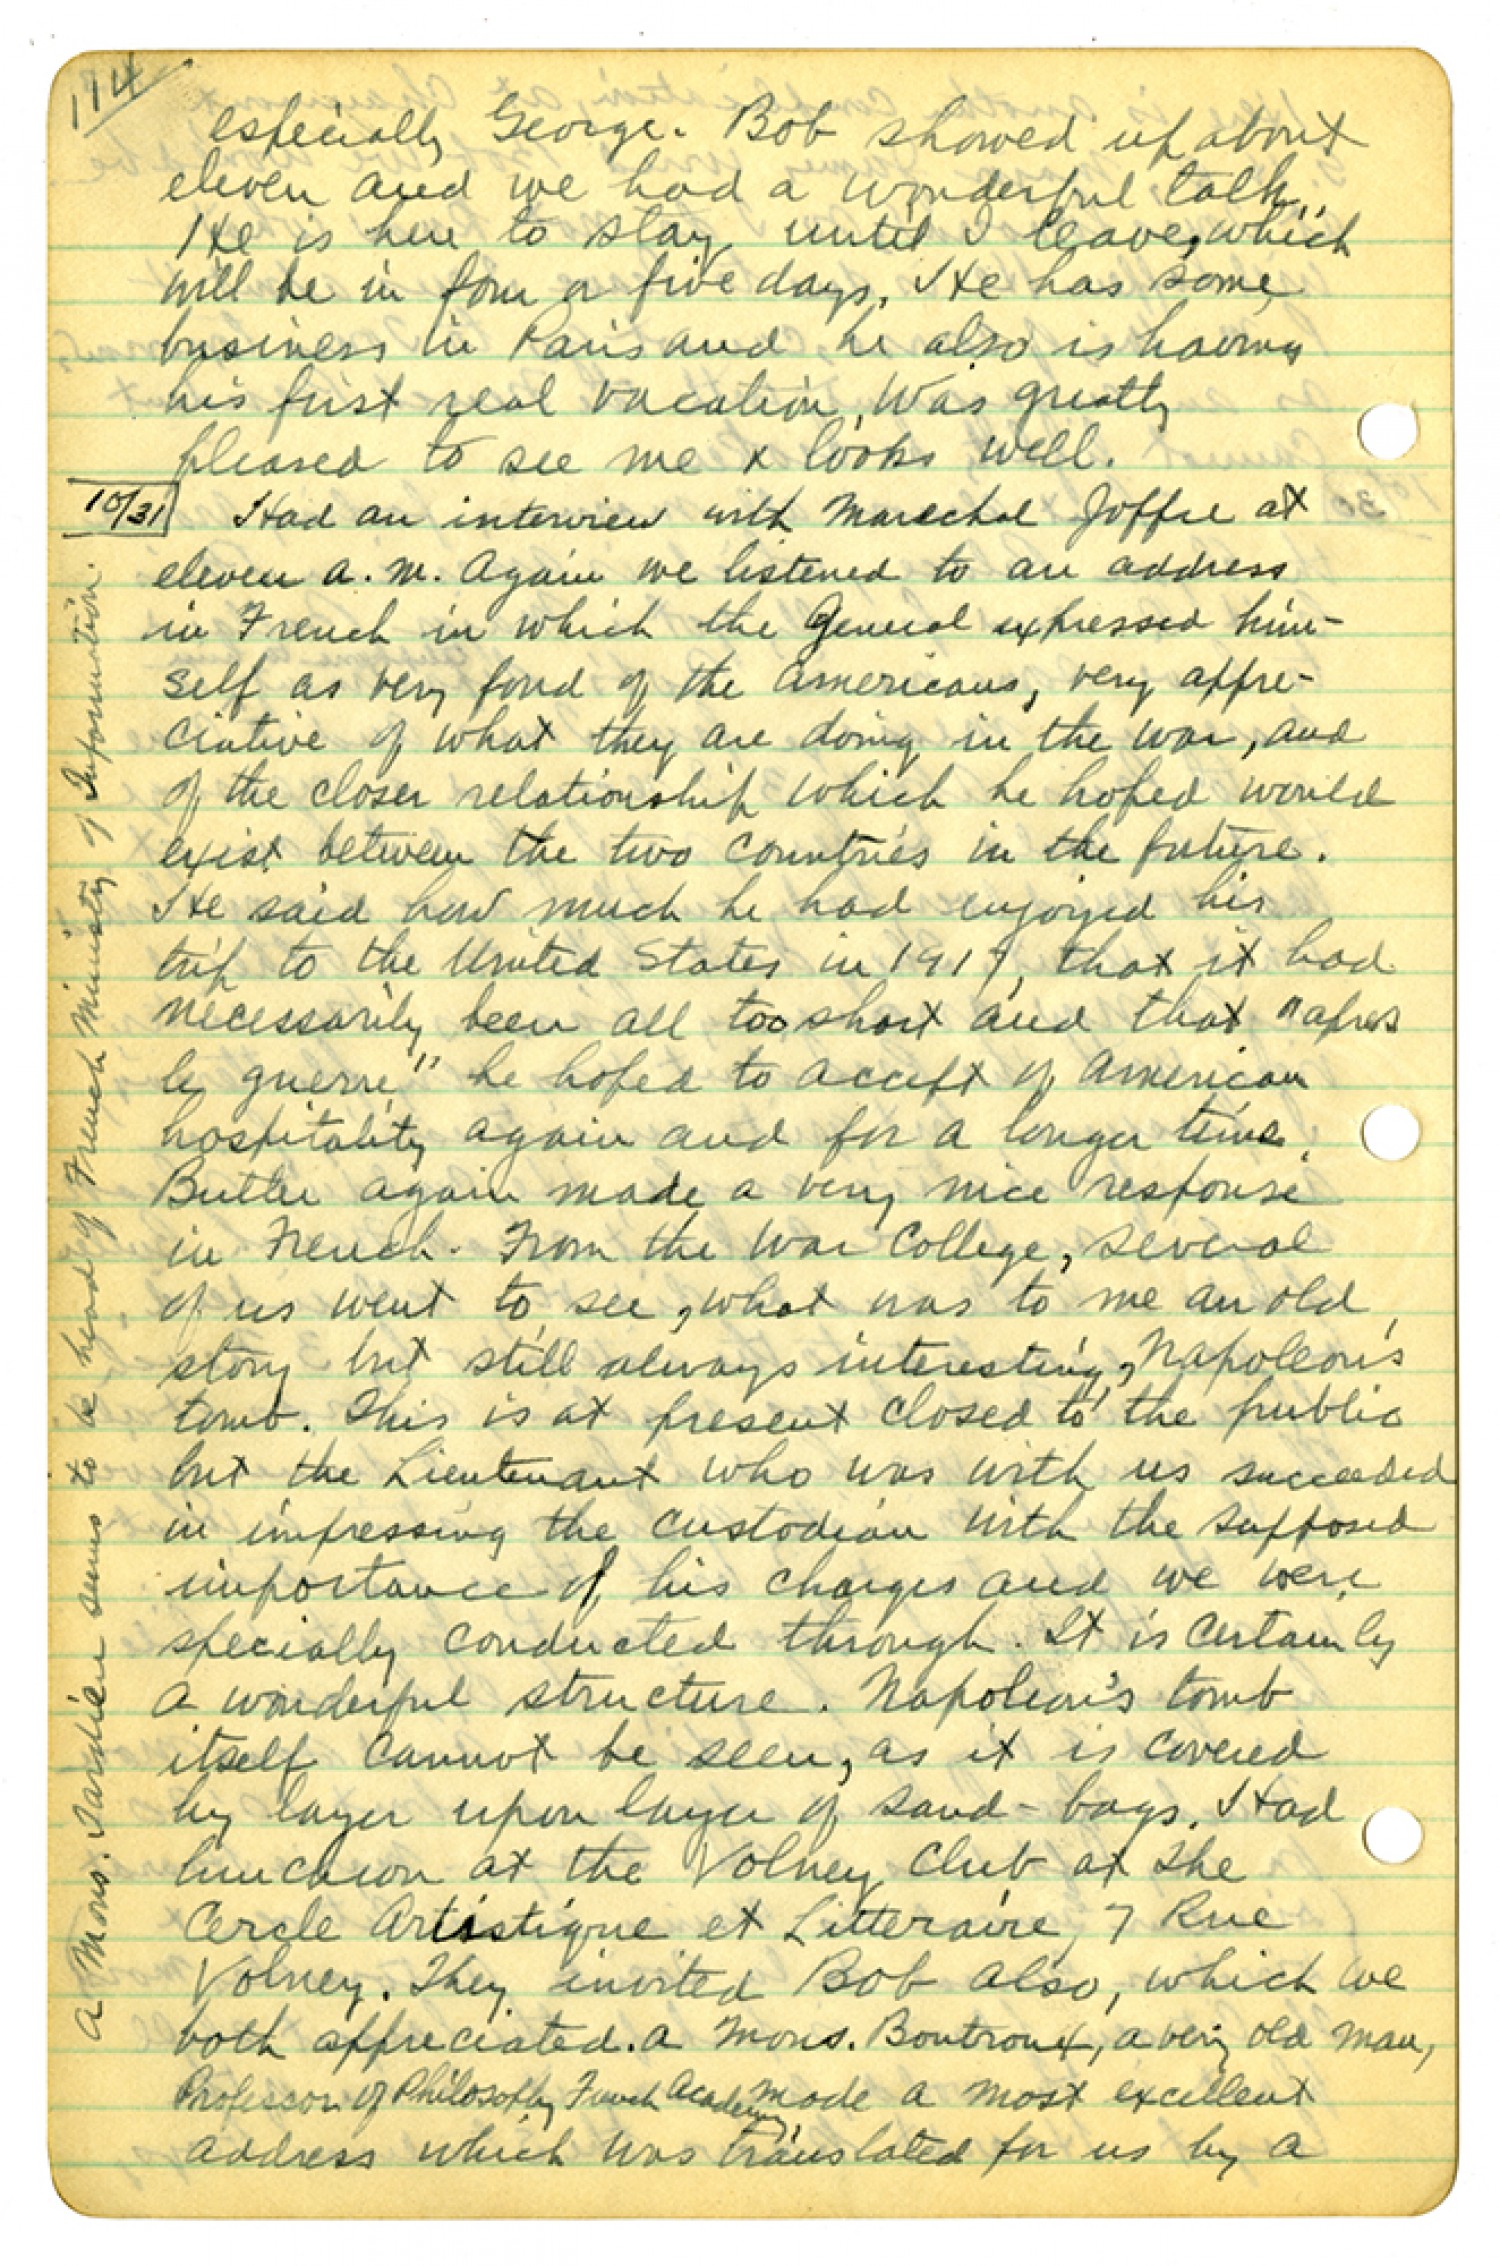 114
especially George. Bob showed up about
eleven and we had a wonderful talk.
He is here to stay until I leave, which
will be in four or five days. He has some
business in Paris and he also is having
his first real vacation. Was greatly
pleased to see me & looks well.
10/31 Had an interview with Marechal Joffre at
eleven a.m. Again we listened to an address
in French in which the General expressed him-
self as very fond of the Americans, very appre-
ciative of what they are doing in the war, and
of the closer relationship which he hoped would
exist between the two countries in the future.
He said how much he had enjoyed his
trip to the United States in 1917, that it had
necessarily been all too short and that "apres
le guerre" he hoped to accept of American
hospitality again and for a longer time.
Butler again made a very nice response
in French. From the War College, several
of us went to see, what was to me an old
story but still always interesting, Napoleon's
tomb. This is at present closed to the public
but the Lieutenant who was with us succeeded
in impressing the custodian with the supposed
importance of his charges and we were
specially conducted through. It is certainly
a wonderful structure. Napoleon's tomb
itself cannot be seen, as it is covered
by layer upon layer of sand-bags. Had
luncheon at the Volney Club at the
Cercle Artistique et Litteraire, 7 Rue
Volney. They invited Bob also, which we
both appreciated. A Mons. Boutroux, a very old man,
Professor of Philosophy French Academy, made a most excellent
address which was translated for us by a
A Mons. seems to be head of French Ministry of Information.